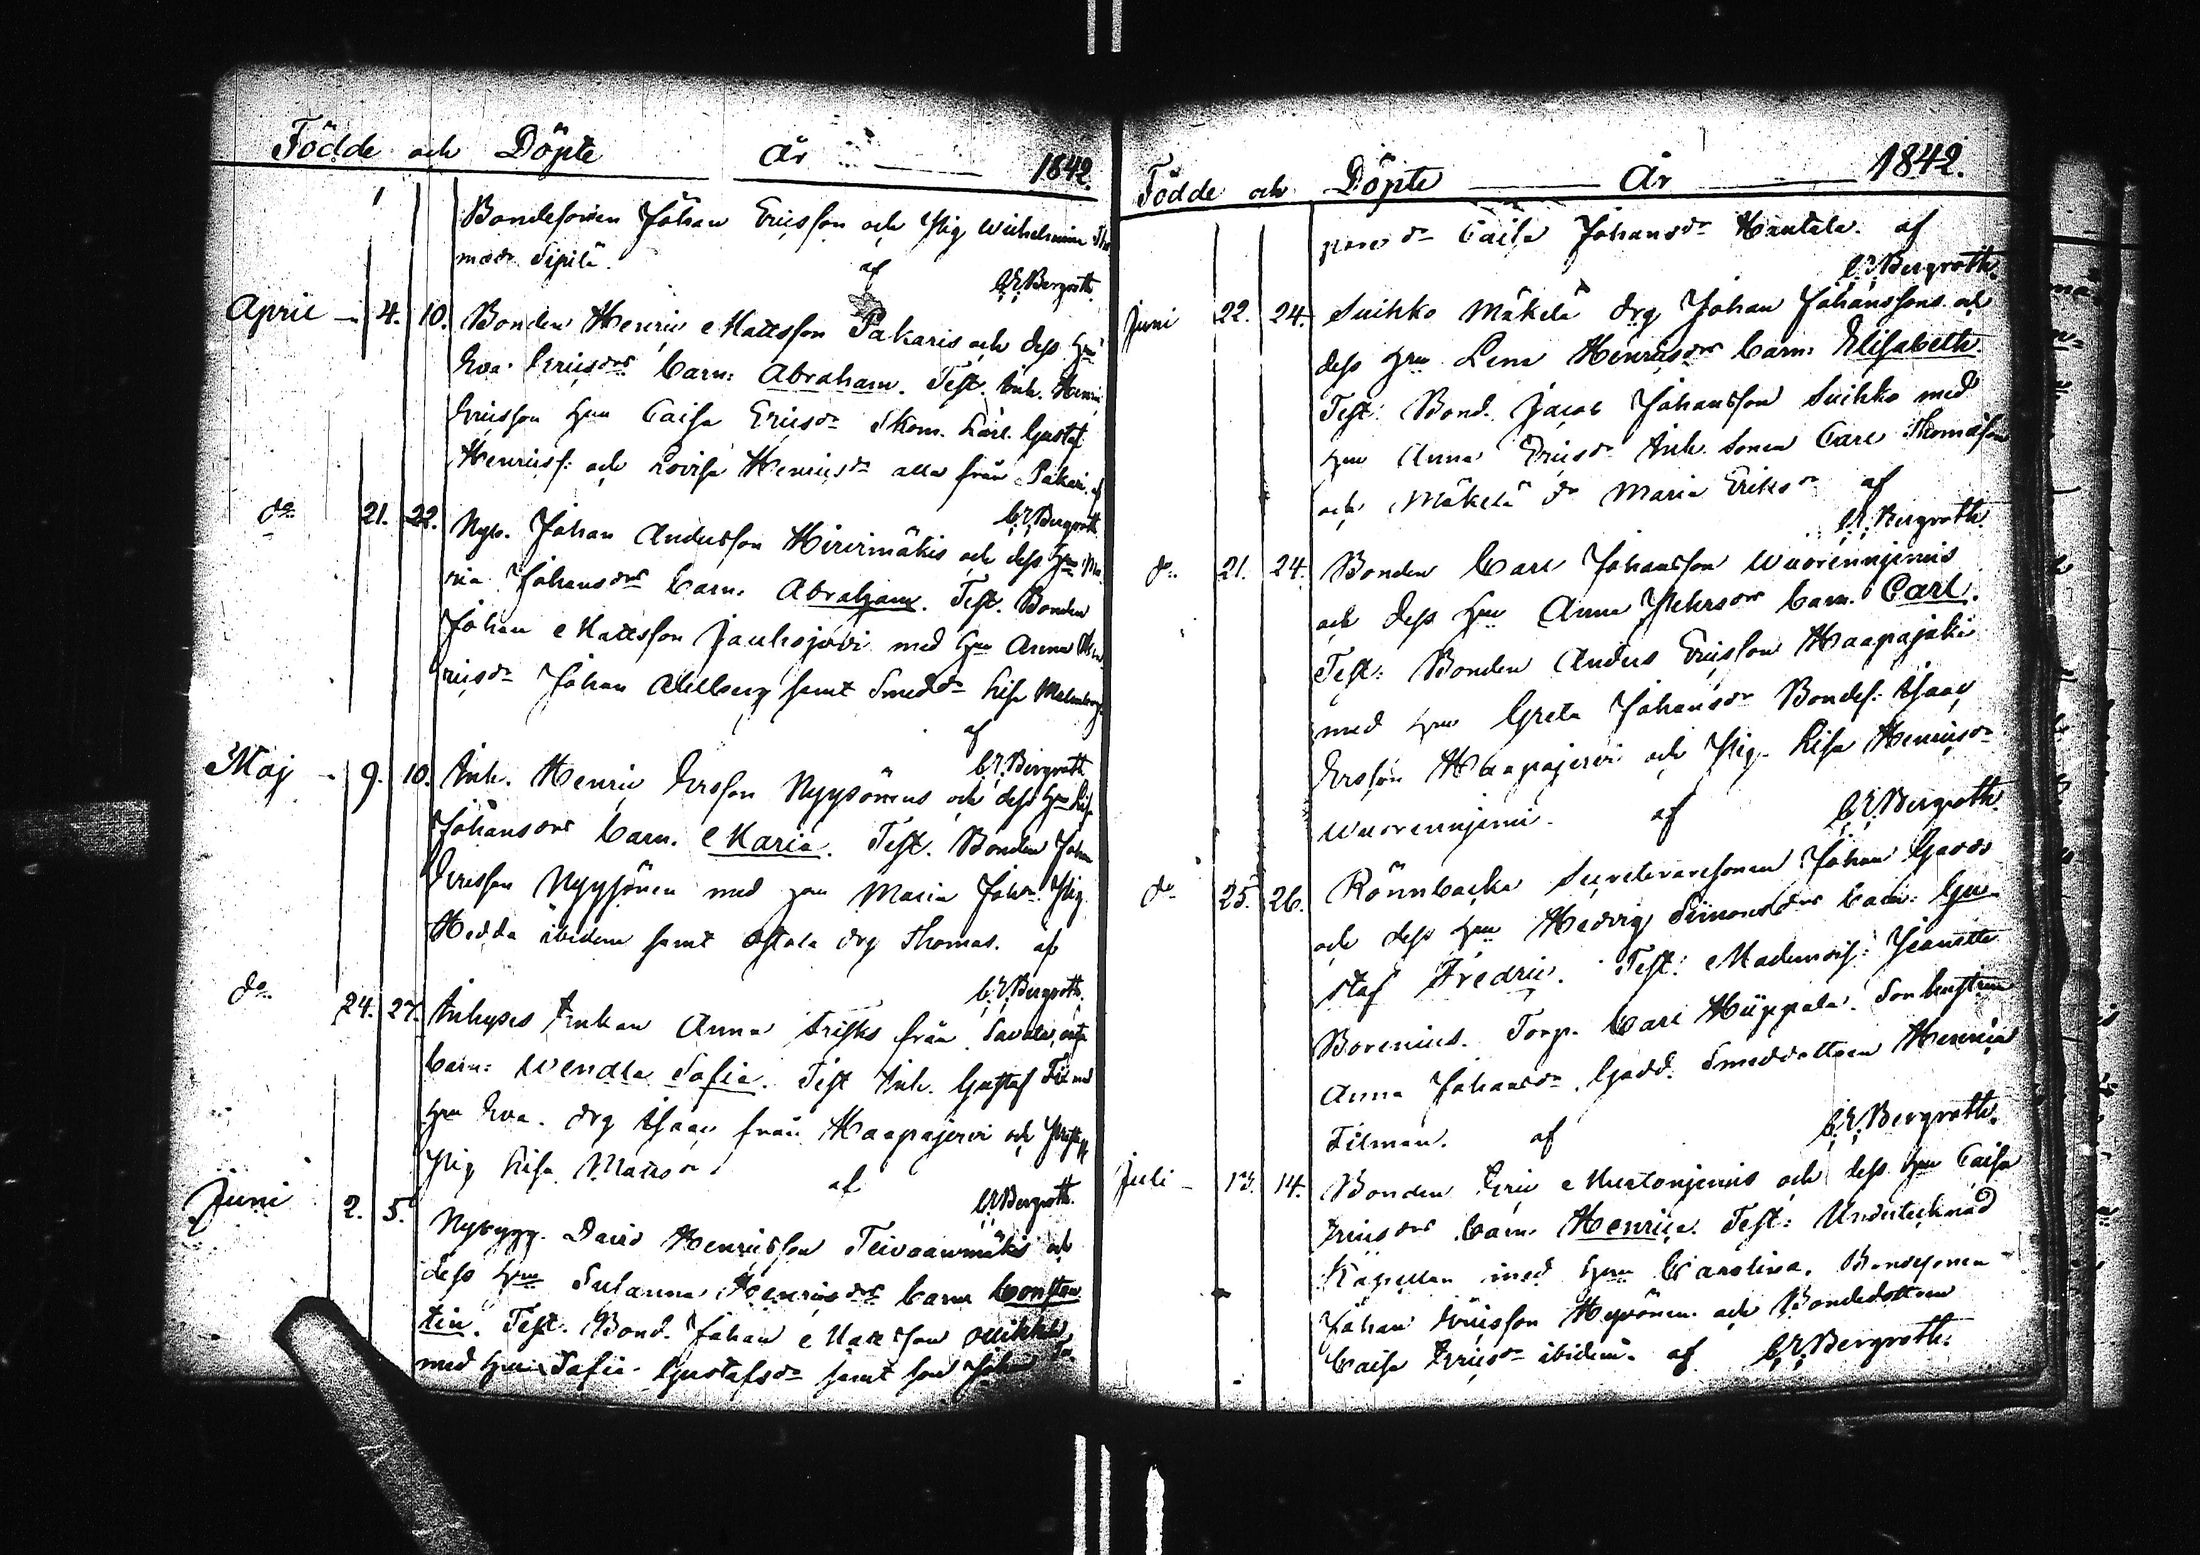 Födde och Döpte År 1842.
Bondesonen Johan Ericsson och Pig. Wilhelmina Tho
masdr Sipilä. af
C.E. Bergroth.
April 4. 10. Bonden Henric Mattsson Pakaris och dess Hru
Eva Ericsdrs barn: Abraham. Test. Inh. Henric
Ericsson Hru Caisa Ericsdr Skom. Lärl. Gustaf
Henricss: och Lovisa Henricsdr alla från Pakari. af
C.E. Bergroth
do 21. 22. Nyb. Johan Andersson Hirvimäkis och dess Hru Ma
ria Johansdrs barn: Abraham. Test. Bonden
Johan Mattsson Jauhojärvi med Hru Anna Hen
ricsdr Johan Ahlberg samt Smeddr Lisa Malmberg
af
C.E. Bergroth
Maj 9. 10. Inh. Henric Ersson Nyysönens och dess Hru Lisa
Johansdrs barn. Maria. Test. Bonden Johan
Ericsson Nyysönen med Hru Maria Johdr. Pig.
Hedda ibidem samt Ostola drg Thomas. af
C.E. Bergroth.
do 24. 27. Inhyses Enkan Anna Frisks från Savela, oäkta
barn: Wendla Sofia. Test Inh. Gustaf Fil med
Hru Eva. drg Isaac från Haapajervi och
Pig Lisa Mattsdr. af
C.E. Bergroth.
Juni 2. 5. Nybygg. David Henricsson Teivaanmäkis och
dess Hru Susanna Henricsdrs barn Constan
tin. Test. Bond. Johan Mattsson Ollikkala
med Hru Sofia Gustafsdr samt son Johan
Födde och Döpte År 1842.
dr Caisa Johansdr Hautala. af
C.E. Bergroth.
Juni 22. 24. Suikko Mäkelä drg Johan Johanssons och
dess Hru Lena Henricsdrs barn: Elisabeth.
Test: Bond. Jacob Johansson Suikko med
Hru Anna Ericsdr Inh. Sonen Carl Thomasson
och Mäkelä dr Maria Eriksdr af
C.E. Bergroth.
do 21. 24. Bonden Carl Johansson Wuorennjemis
och dess Hru Anna Pehrsdrs barn. Carl.
Test: Bonden Anders Ericsson Haapajoki
med Hru Greta Johansdr Bondes: Isaac
Ersson Haapajervi och Pig. Lisa Henricsdr
Wuorennjemi. af C.E. Bergroth.
do 25. 26. Rönnbacka Secreteraresonen Johan Gadds
och dess Hru Hedvig Simonsdrs barn: Gu
staf Fredric. Test: Mademois: Jeanette
Borenius. Torp. Carl Hiippala. Sonhustrun
Anna Johansdr Gadd. Smeddottren Henrica
Filman. af C.E. Bergroth.
Juli 13. 14. Bonden Eric Murtonjemis och dess Hru Caisa
Ericsdrs barn Henrica. Test: Undertecknad
Kapellan med Hru Carolina. Bondesonen
Johan Ericsson Hyvönen och Bondedottren
Caisa Ericsdr ibidem. af C.E. Bergroth.